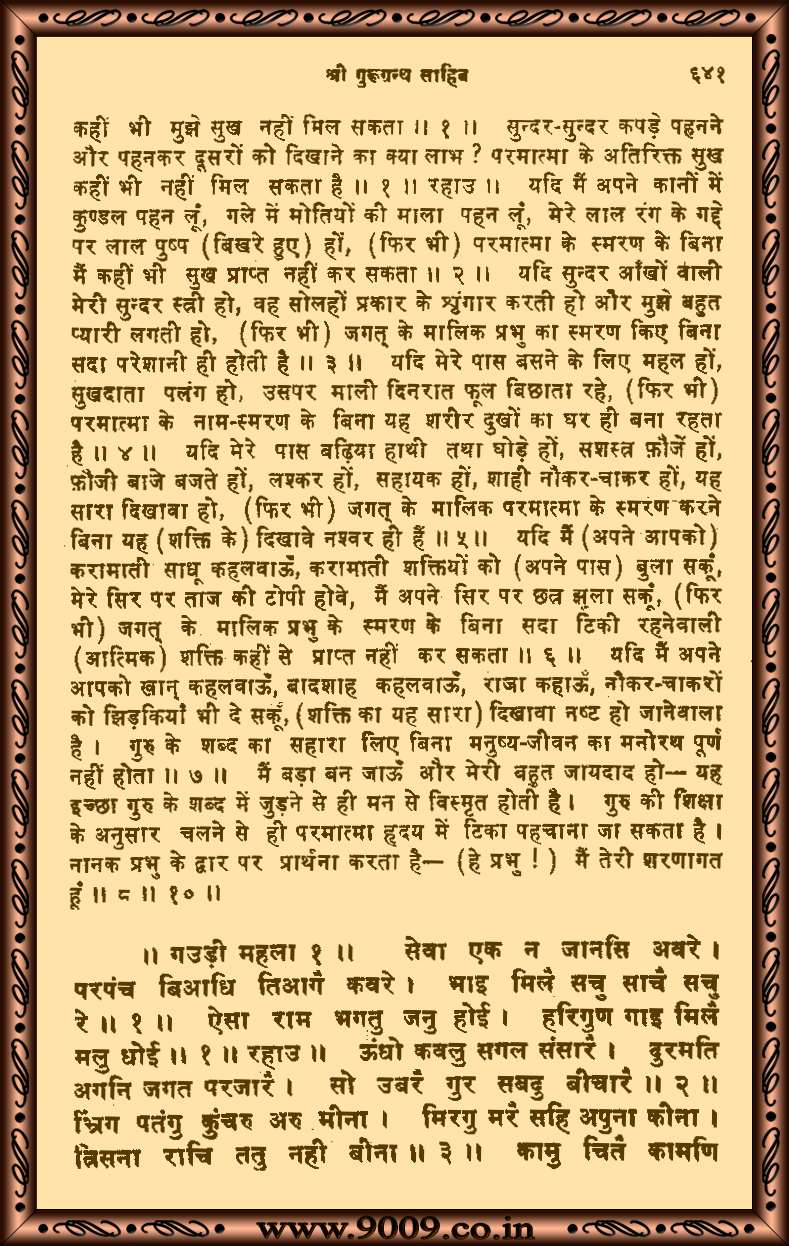 श्री गुरूग्रन्थ साहिब ६४१
कहीं भी मुझे सुख नहीं मिल सकता ॥ १ ॥ सुन्दर-सुन्दर कपड़े पहनने
और पहनकर दूसरों को दिखाने का क्या लाभ ? परमात्मा के अतिरिक्त सुख
कहीं भी नहीं मिल सकता है ॥ १ ॥ रहाउ ॥ यदि मैं अपने कानों में
कुण्डल पहन लूं, गले में मोतियों की माला पहन लूं, मेरे लाल रंग के गद्दे
पर लाल पुष्प (बिखरे हुए) हों, (फिर भी) परमात्मा के स्मरण के बिना
मैं कहीं भी सुख प्राप्त नहीं कर सकता ॥ २ ॥ यदि सुन्दर आँखों वाली
मेरी सुन्दर स्त्री हो, वह सोलहों प्रकार के श्रृंगार करती हो और मुझे बहुत
प्यारी लगती हो, (फिर भी) जगत् के मालिक प्रभु का स्मरण किए बिना
सदा परेशानी ही होती है ॥ ३ ॥ यदि मेरे पास बसने के लिए महल हों,
सुखदाता पलंग हो, उसपर माली दिनरात फूल बिछाता रहे, (फिर भी)
परमात्मा के नाम-स्मरण के बिना यह शरीर दुखों का घर ही बना रहता
है ॥ ४ ॥ यदि मेरे पास बढ़िया हाथी तथा घोड़े हों, सशस्त्र फ़ौजें हों,
फ़ौजी बाजे बजते हों, लश्कर हों, सहायक हों, शाही नौकर-चाकर हों, यह
सारा दिखावा हो, (फिर भी) जगत् के मालिक परमात्मा के स्मरण करने
बिना यह (शक्ति के) दिखावे नश्वर ही हैं ॥ ५ ॥ यदि मैं (अपने आपको)
करामाती साधू कहलवाऊँ, करामाती शक्तियों को (अपने पास) बुला सकूं,
मेरे सिर पर ताज की टोपी होवे, मैं अपने सिर पर छत्र झुला सकूं, (फिर
भी) जगत् के मालिक प्रभु के स्मरण के बिना सदा टिकी रहनेवाली
(आत्मिक) शक्ति कहीं से प्राप्त नहीं कर सकता ॥ ६ ॥ यदि मैं अपने
आपको खान् कहलवाऊँ, बादशाह कहलवाऊँ, राजा कहाऊँ, नौकर-चाकरों
को झिड़कियां भी दे सकूँ, (शक्ति का यह सारा) दिखावा नष्ट हो जानेवाला
है । गुरु के शब्द का सहारा लिए बिना मनुष्य-जीवन का मनोरथ पूर्ण
नहीं होता ॥ ७ ॥ मैं बड़ा बन जाऊँ और मेरी बहुत जायदाद हो— यह
इच्छा गुरु के शब्द में जुड़ने से ही मन से विस्मृत होती है । गुरु की शिक्षा
के अनुसार चलने से ही परमात्मा हृदय में टिका पहचाना जा सकता है ।
नानक प्रभु के द्वार पर प्रार्थना करता है— (हे प्रभु ! ) मैं तेरी शरणागत
हूं ॥ ८ ॥ १० ॥
॥ गउड़ी महला १ ॥ सेवा एक न जानसि अवरे ।
परपंच बिआधि तिआगै कवरे । भाइ मिलै सचु साचै सचु
रे ॥ १ ॥ ऐसा राम भगतु जनु होई । हरिगुण गाइ मिलै
मलु धोई ॥ १ ॥ रहाउ ॥ ऊंधो कवलु सगल संसारै । दुरमति
अगनि जगत परजारै । सो उबरै गुर सबदु बीचारै ॥ २ ॥
भ्रिंग पतंगु कुंचरु अरु मीना । मिरगु मरै सहि अपुना कीना ।
त्रिसना राचि ततु नही बीना ॥ ३ ॥ कामु चितै कामणि
www.9009.co.in